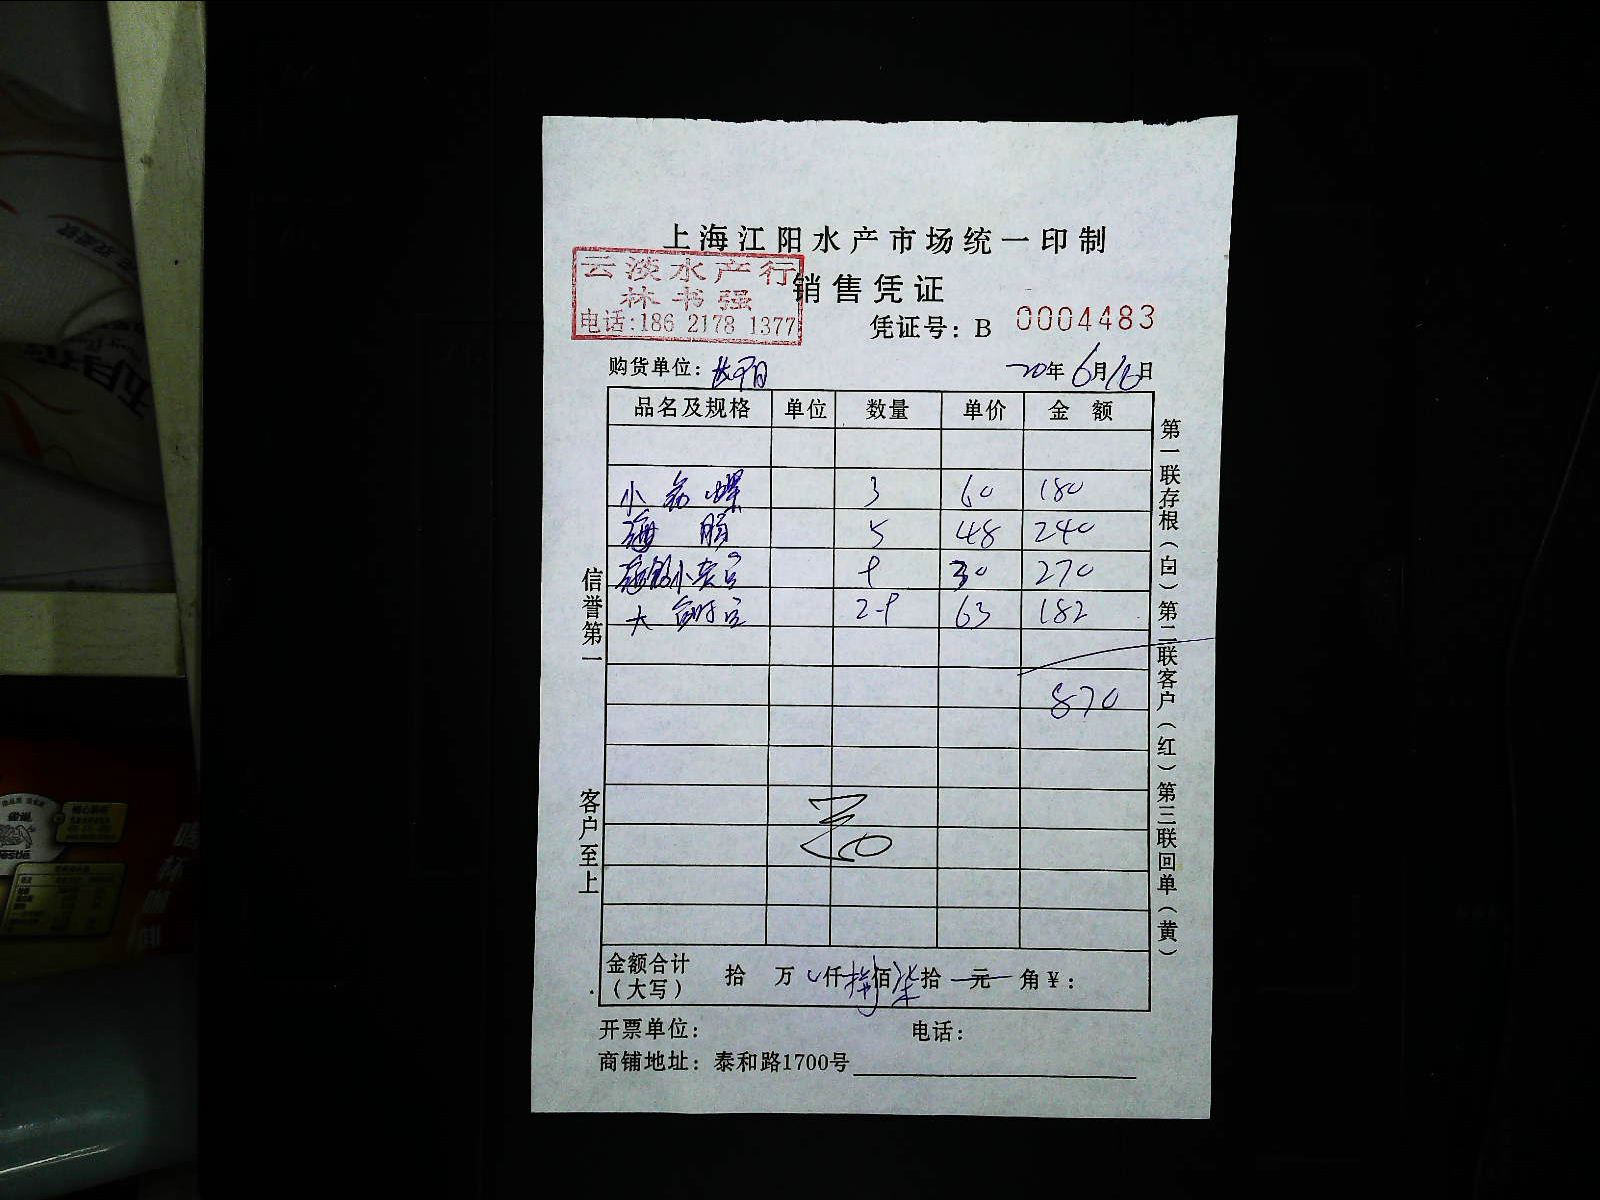 上海江阳水产市场统一印制
云淡水产行
林书强
电话:186 2178 1377
销售凭证
凭证号: B 0004483
购货单位: 长阳 20年6月16日
品名及规格 单位 数量 单价 金额
小 螺 3 60 180
海 5 48 240
小 9 30 270
大 2-9 63 182
870
信誉第一
客户至上
第一联存根(白) 第二联客户(红) 第三联回单(黄)
金额合计(大写) 拾 万 仟捌佰柒拾 元 角¥:
开票单位: 电话:
商铺地址: 泰和路1700号
五月花